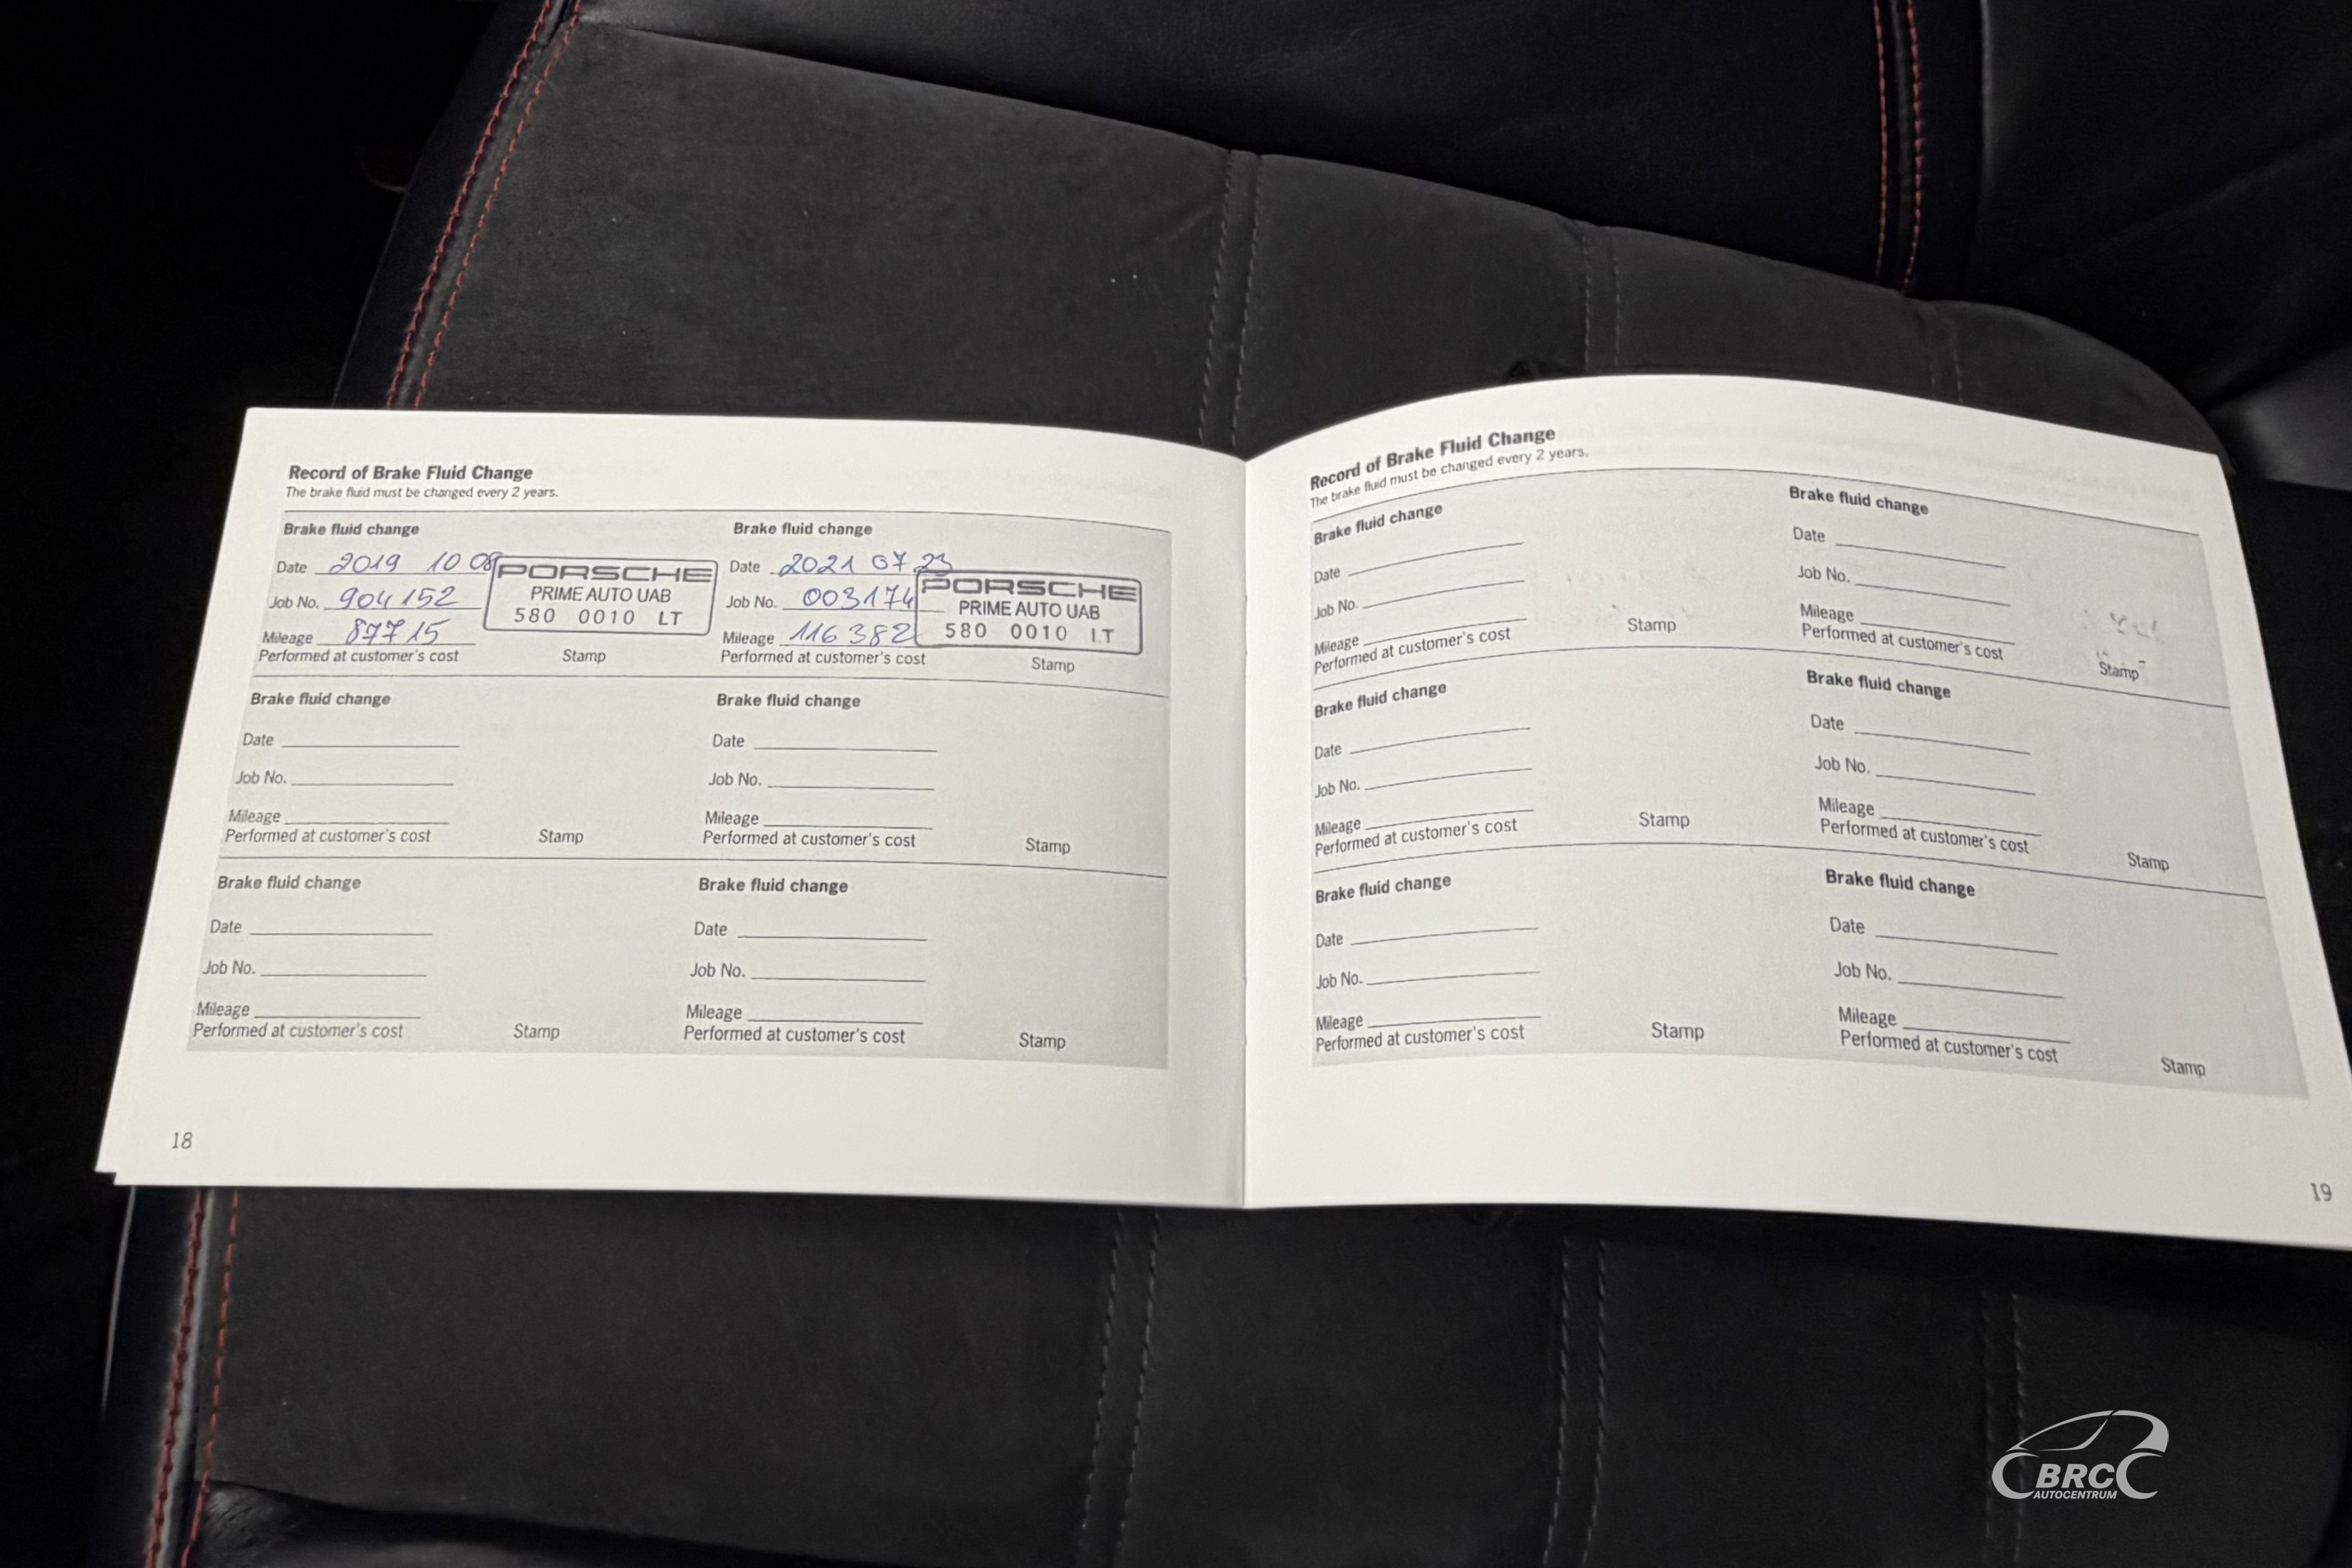 Record of Brake Fluid Change
The brake fluid must be changed every 2 years.
Brake fluid change
Date 2019 10 08
Job No. 904152
Mileage 87715
Performed at customer's cost
PORSCHE
PRIME AUTO UAB
580 0010 LT
Stamp
Brake fluid change
Date 2021 07 23
Job No. 003174
Mileage 116382
Performed at customer's cost
PORSCHE
PRIME AUTO UAB
580 0010 LT
Stamp
Brake fluid change
Date
Job No.
Mileage
Performed at customer's cost
Stamp
Brake fluid change
Date
Job No.
Mileage
Performed at customer's cost
Stamp
Brake fluid change
Date
Job No.
Mileage
Performed at customer's cost
Stamp
Brake fluid change
Date
Job No.
Mileage
Performed at customer's cost
Stamp
18
Record of Brake Fluid Change
The brake fluid must be changed every 2 years.
Brake fluid change
Date
Job No.
Mileage
Performed at customer's cost
Stamp
Brake fluid change
Date
Job No.
Mileage
Performed at customer's cost
Stamp
Brake fluid change
Date
Job No.
Mileage
Performed at customer's cost
Stamp
Brake fluid change
Date
Job No.
Mileage
Performed at customer's cost
Stamp
Brake fluid change
Date
Job No.
Mileage
Performed at customer's cost
Stamp
Brake fluid change
Date
Job No.
Mileage
Performed at customer's cost
Stamp
19
BRC
AUTOCENTRUM